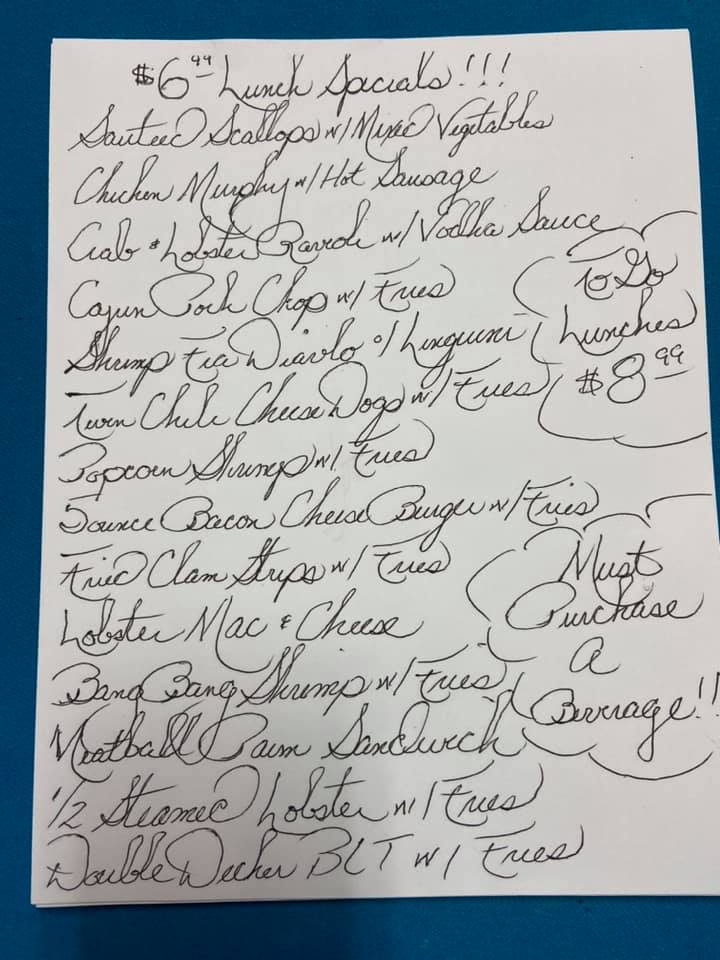 $6.99 Lunch Specials!!!
Sauteed Scallops w/ Mixed Vegetables
Chicken Murphy w/ Hot Sausage
Crab & Lobster Ravioli w/ Vodka Sauce
Cajun Pork Chop w/ Fries
Shrimp Fra Diavlo o/ Linguini
Twin Chili Cheese Dogs w/ Fries
Popcorn Shrimp w/ Fries
5ounce Bacon Cheese Burger w/ Fries
Fried Clam Strips w/ Fries
Lobster Mac & Cheese
Bang Bang Shrimp w/ Fries
Meatball Parm Sandwich
1/2 Steamed Lobster w/ Fries
Double Decker BLT w/ Fries
To Go
Lunches
$8.99
Must
Purchase
A
Beverage!!